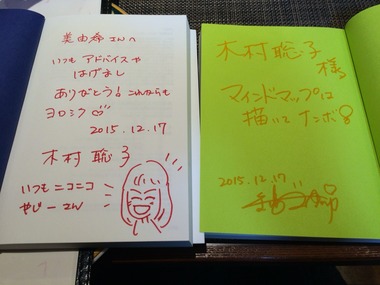 美由希さんへ
いつも アドバイスや
はげまし
ありがとう! これからも
ヨロシク
2015.12.17
木村 聡子
いつもニコニコ
やじーさん
木村 聡子
様
マインドマップは
描いてナンボ
2015.12.17